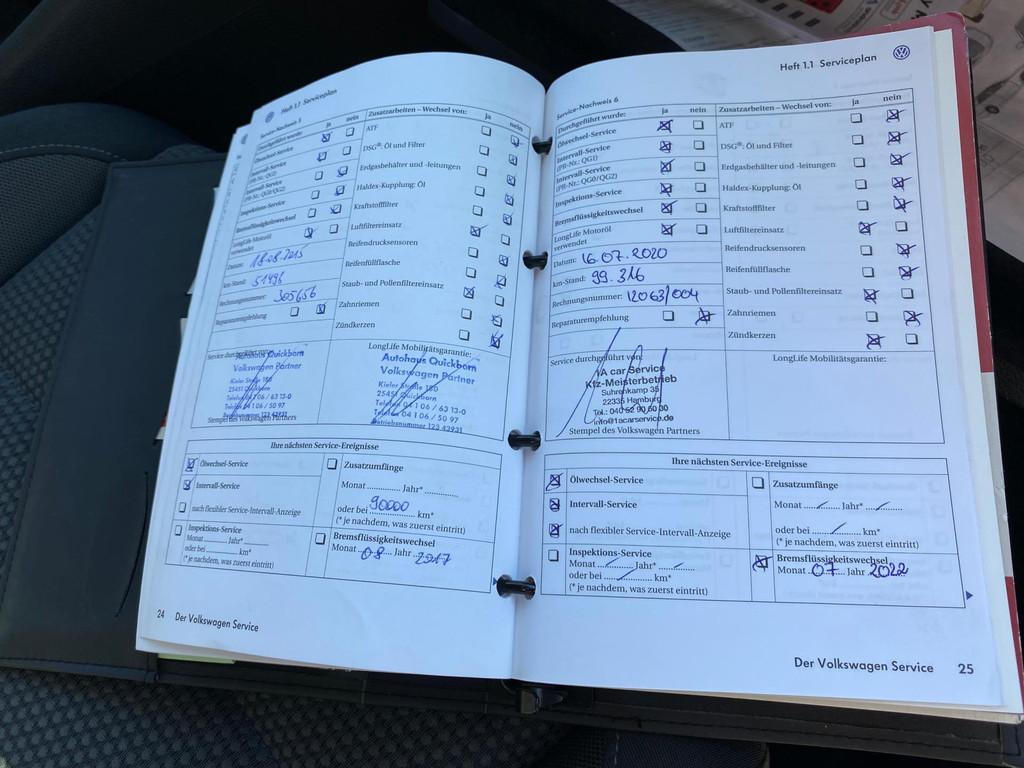 Heft 1.1 Serviceplan
Service-Nachweis 5
Durchgeführt wurde: ja nein
Ölwechsel-Service
Intervall-Service
(PR-Nr.: QG1)
Intervall-Service
(PR-Nr.: QG0/QG2)
Inspektions-Service
Bremsflüssigkeitswechsel
LongLife Motoröl
verwendet
Datum: 18.08.2015
km-Stand: 51496
Rechnungsnummer: 305656
Reparaturempfehlung
Zusatzarbeiten – Wechsel von: ja nein
ATF
DSG®: Öl und Filter
Erdgasbehälter und -leitungen
Haldex-Kupplung: Öl
Kraftstofffilter
Luftfiltereinsatz
Reifendrucksensoren
Reifenfüllflasche
Staub- und Pollenfiltereinsatz
Zahnriemen
Zündkerzen
Service durchgeführt von:
Autohaus Quickborn
Volkswagen Partner
Kieler Straße 180
25451 Quickborn
Telefon 04 1 06 / 63 13-0
Telefax 04 1 06 / 50 97
Betriebsnummer 123 43931
Stempel des Volkswagen Partners
LongLife Mobilitätsgarantie:
Autohaus Quickborn
Volkswagen Partner
Kieler Straße 180
25451 Quickborn
Telefon 04 1 06 / 63 13-0
Telefax 04 1 06 / 50 97
Betriebsnummer 123 43931
Ihre nächsten Service-Ereignisse
Ölwechsel-Service
Intervall-Service
nach flexibler Service-Intervall-Anzeige
Inspektions-Service
Monat Jahr*
oder bei km*
(* je nachdem, was zuerst eintritt)
Zusatzumfänge
Monat Jahr*
oder bei 90000 km*
(* je nachdem, was zuerst eintritt)
Bremsflüssigkeitswechsel
Monat 08 Jahr 2017
24 Der Volkswagen Service
Heft 1.1 Serviceplan
Service-Nachweis 6
Durchgeführt wurde: ja nein
Ölwechsel-Service
Intervall-Service
(PR-Nr.: QG1)
Intervall-Service
(PR-Nr.: QG0/QG2)
Inspektions-Service
Bremsflüssigkeitswechsel
LongLife Motoröl
verwendet
Datum: 16.07.2020
km-Stand: 99.316
Rechnungsnummer: 12063/004
Reparaturempfehlung
Zusatzarbeiten – Wechsel von: ja nein
ATF
DSG®: Öl und Filter
Erdgasbehälter und -leitungen
Haldex-Kupplung: Öl
Kraftstofffilter
Luftfiltereinsatz
Reifendrucksensoren
Reifenfüllflasche
Staub- und Pollenfiltereinsatz
Zahnriemen
Zündkerzen
Service durchgeführt von:
1A car Service
Kfz-Meisterbetrieb
Suhrenkamp 35
22335 Hamburg
Tel.: 040 52 90 60 30
info@1acarservice.de
Stempel des Volkswagen Partners
LongLife Mobilitätsgarantie:
Ihre nächsten Service-Ereignisse
Ölwechsel-Service
Intervall-Service
nach flexibler Service-Intervall-Anzeige
Inspektions-Service
Monat Jahr*
oder bei km*
(* je nachdem, was zuerst eintritt)
Zusatzumfänge
Monat Jahr*
oder bei km*
(* je nachdem, was zuerst eintritt)
Bremsflüssigkeitswechsel
Monat 07 Jahr 2022
Der Volkswagen Service 25